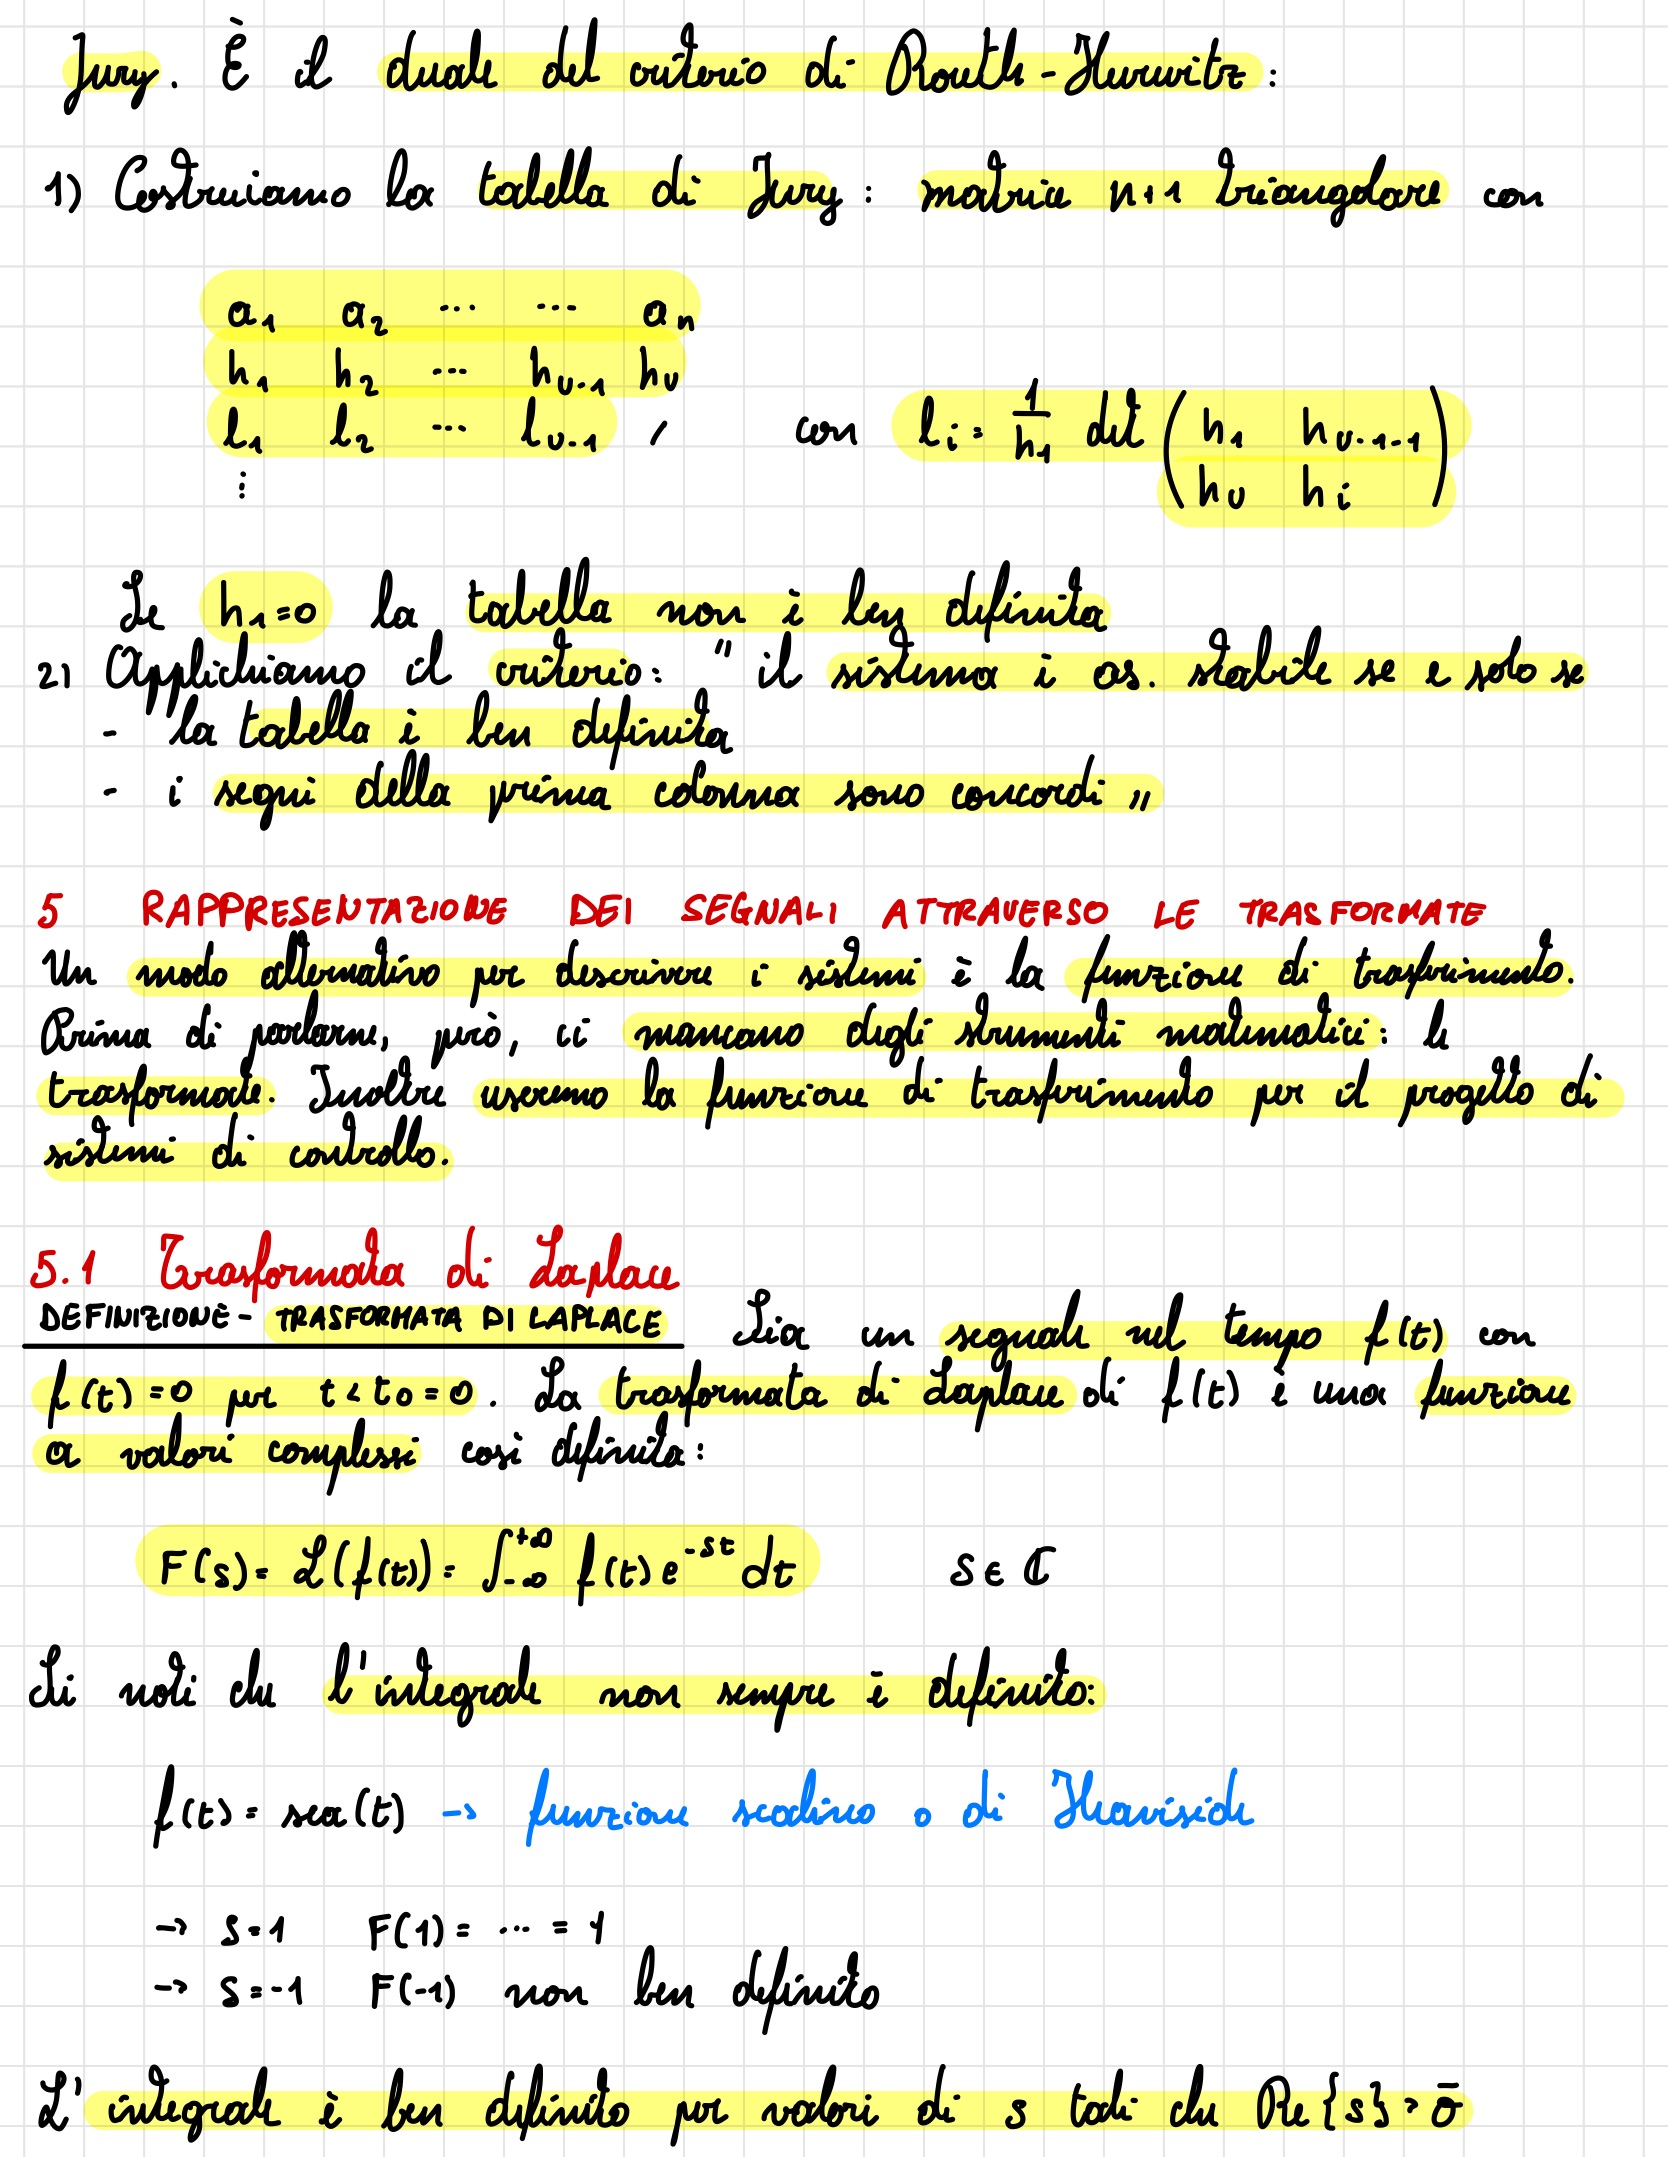 Jury. È il duale del criterio di Routh-Hurwitz:
1) Costruiamo la tabella di Jury: matrice n+1 triangolare con
a₁ a₂ ... ... aₙ
h₁ h₂ ... hᵥ₋₁ hᵥ
l₁ l₂ ... lᵥ₋₁ / con lᵢ = 1/h₁ det ( h₁ hᵥ₋₁₋₁
hᵥ hᵢ )
⋮
Se h₁=0 la tabella non è ben definita
2) Applichiamo il criterio: " il sistema è as. stabile se e solo se
- la tabella è ben definita
- i segni della prima colonna sono concordi "
5 RAPPRESENTAZIONE DEI SEGNALI ATTRAVERSO LE TRASFORMATE
Un modo alternativo per descrivere i sistemi è la funzione di trasferimento.
Prima di parlarne, però, ci mancano degli strumenti matematici: le
trasformate. Inoltre useremo la funzione di trasferimento per il progetto di
sistemi di controllo.
5.1 Trasformata di Laplace
DEFINIZIONE - TRASFORMATA DI LAPLACE Sia un segnale nel tempo f(t) con
f(t)=0 per t<t₀=0. La trasformata di Laplace di f(t) è una funzione
a valori complessi così definita:
F(s) = ℒ(f(t)) = ∫₋∞⁺∞ f(t) e^-st dt s ∈ ℂ
Si noti che l'integrale non sempre è definito:
f(t) = sca(t) → funzione scalino o di Heaviside
→ s=1 F(1) = ... = 1
→ s=-1 F(-1) non ben definito
L'integrale è ben definito per valori di s tali che Re{s} > σ̄